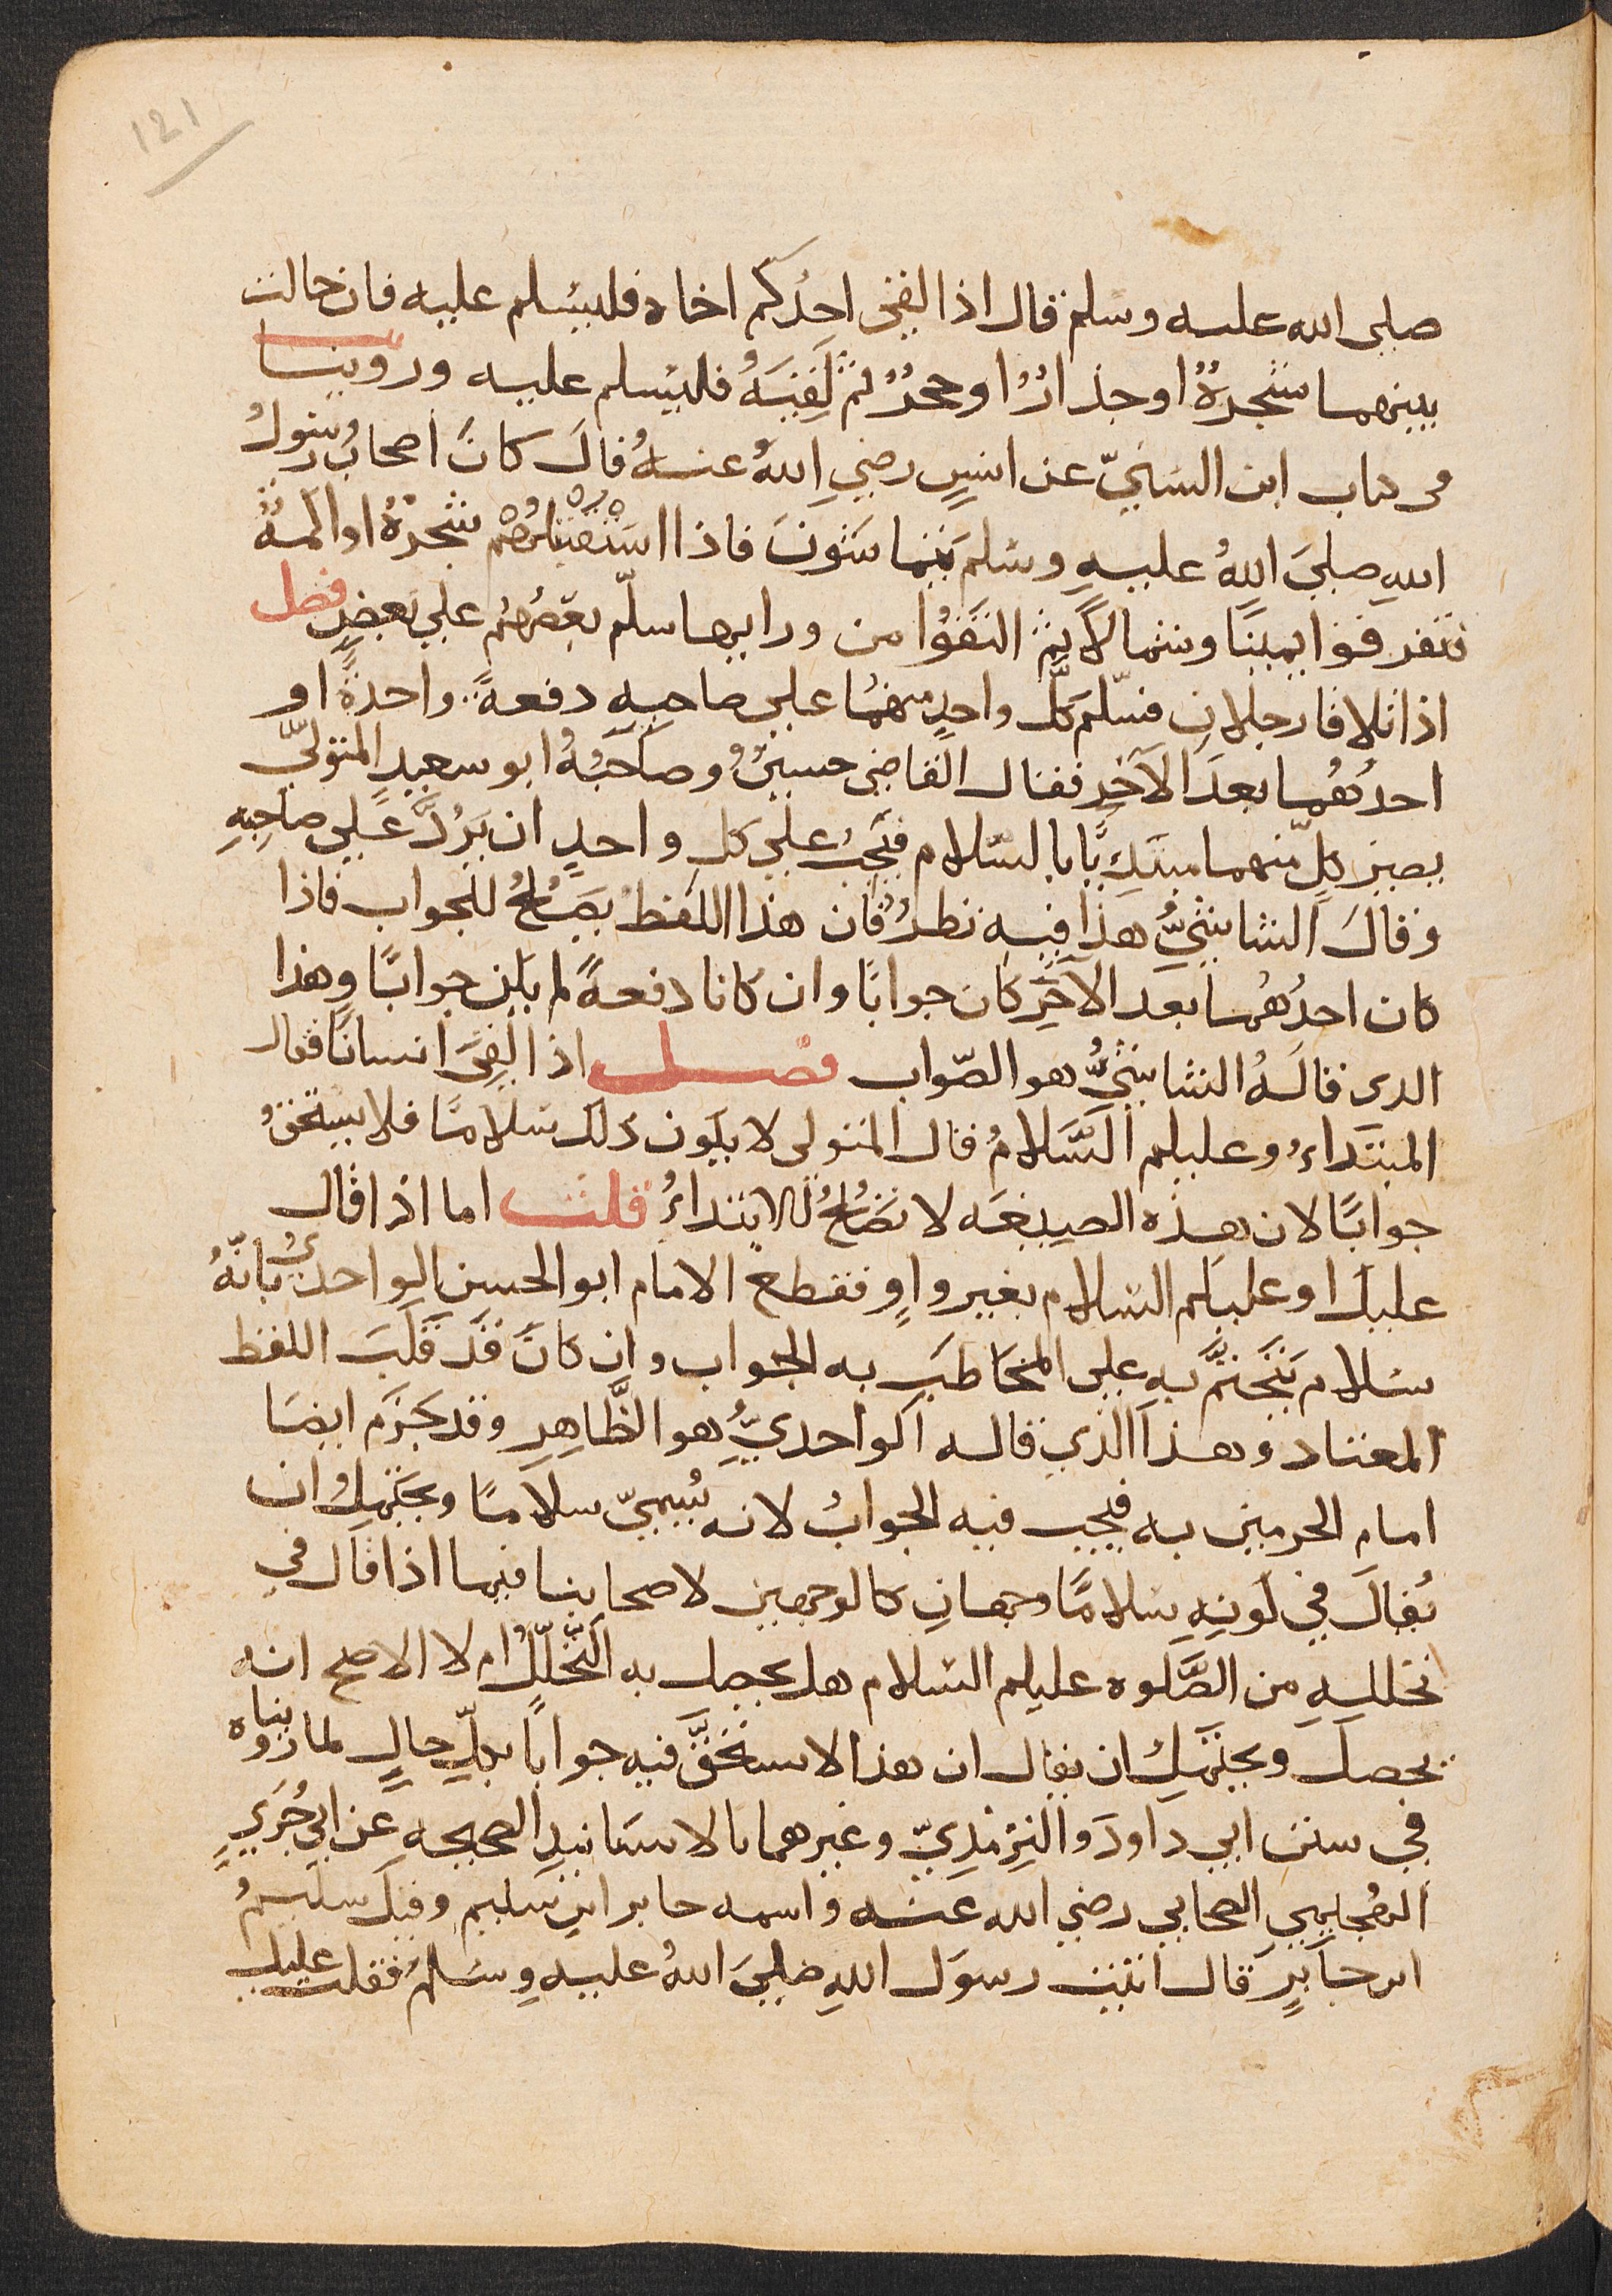 121
صلى الله عليه وسلم قال اذا لقي احدكم اخاه فليسلم عليه فان حالت
بينهما شجرةٌ او جدارٌ او حجرٌ ثم لَقِيَهُ فليسلم عليه وروينا
في كتاب ابن السنيّ عن انسٍ رضي اللهُ عنهُ قالَ كانَ اصحابُ رسولُ
اللهِ صلى اللهُ عليهِ وسلمَ يتماشونَ فاذا استقبلتهُم شجرةٌ او اكمةٌ
فتفرقوا يمينًا وشمالًا ثم التقَوْا من ورايها سلّم بعضُهُم علي بَعضٍ فصل
اذا تلاقا رجلان فسلّم كلُّ واحدٍ منهمُا علي صاحبِهِ دفعةً واحدةً او
احدُهُما بعدَ الآخرِ فقال القاضي حسينُ وصاحبُهُ ابو سعيدٍ المتوليّ
يصير كلّ منهما مبتدِيًا بالسّلام فيَجبُ علي كل واحدٍ ان يَرُدَّ عَلي صاحِبِهِ
وقالَ الشاشيُّ هذا فيهِ نظرٌ فان هذا اللفظُ يصَلحُ للجواب فاذا
كان احدُهُما بعد الآخَرِ كان جوابًا وان كانا دفعةً لم يكن جوابًا وهذا
الدى قالَهُ الشاشيُّ هو الصّواب فصل اذا لقِيَ انسانًا فقال
المبتَداءُ وعليكم السَّلامُ قال المتولى لا يكون ذلك سَلامًا فلا يستحقُ
جوابًا لان هذه الصيغه لا تصَلحُ للابتداءُ قلت اما اذا قال
عليك او عليكم السّلام بغير واوٍ فقطع الامام ابو الحسن الواحديُ بانّهُ
سلام يَتَحَتَّم بهِ علي المخَاطَبِ به الجواب وان كانَ قد قَلَبَ اللفظ
المعتاد وهذا الذي قاله الواحديُّ هو الظَّاهِرِ وقد جَزَم ايضًا
امام الحرمين به فيجب فيه الجوابُ لانه يُسميّ سلامًا ويَحتَمِلُ ان
يُقالَ في كَونِهِ سَلامًا وجهانِ كالوجهين لاصحابنا فيما اذا قال في
تحللِهِ من الصَّلوه عليكم السّلام هل يحصل به التَّحَلّلُ ام لا الاصح انه
يحصل ويحتمِل ان يقال ان هذا لا يستحقَّ فيه جوابًا بكلِّ حالٍ لما رويناه
في سنن ابي داودَ والتِرْمذيّ وغيرهما بالاسَانيدِ الصحيحهِ عن ابي جُرَيٍ
الهُجَيميِ الصحابي رضي الله عنه واسمه جابر ابن سليم وقيل سليمُ
ابن جَابرٍ قال اتيت رسوَل اللهِ صلى اللهُ عليه وسَلم فقلت عليك